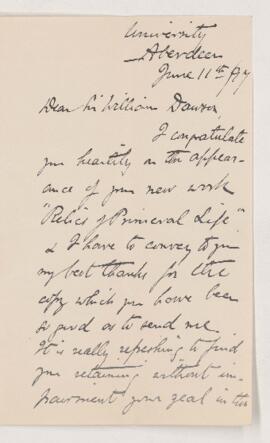 University
Aberdeen
June 11th/97
Dear Sir William Dawson,
I congratulate
you heartily on the appear-
ance of your new work
"Relics of Primeval Life"
& I have to convey to you
my best thanks for the
copy which you have been
so good as to send me.
It is really refreshing to find
you retaining without im-
pairment your zeal in the